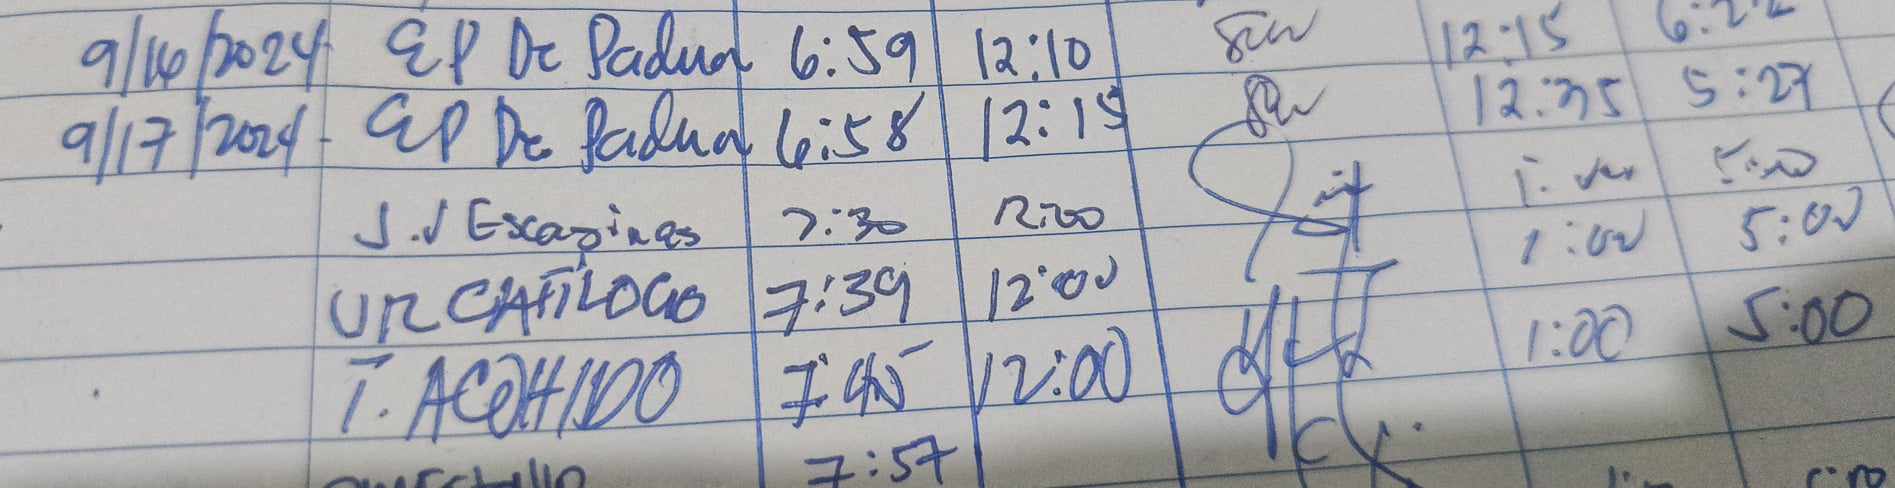 9/16/2024 EP De Padua 6:59 12:10 12:15 6:22
9/17/2024 EP De Padua 6:58 12:15 12:35 5:27
J.J Escapines 7:30 12:00 1:00 5:00
UR CATILOGO 7:39 12:00 1:00 5:00
T. ACOHIDO 7:45 12:00 1:00 5:00
7:57